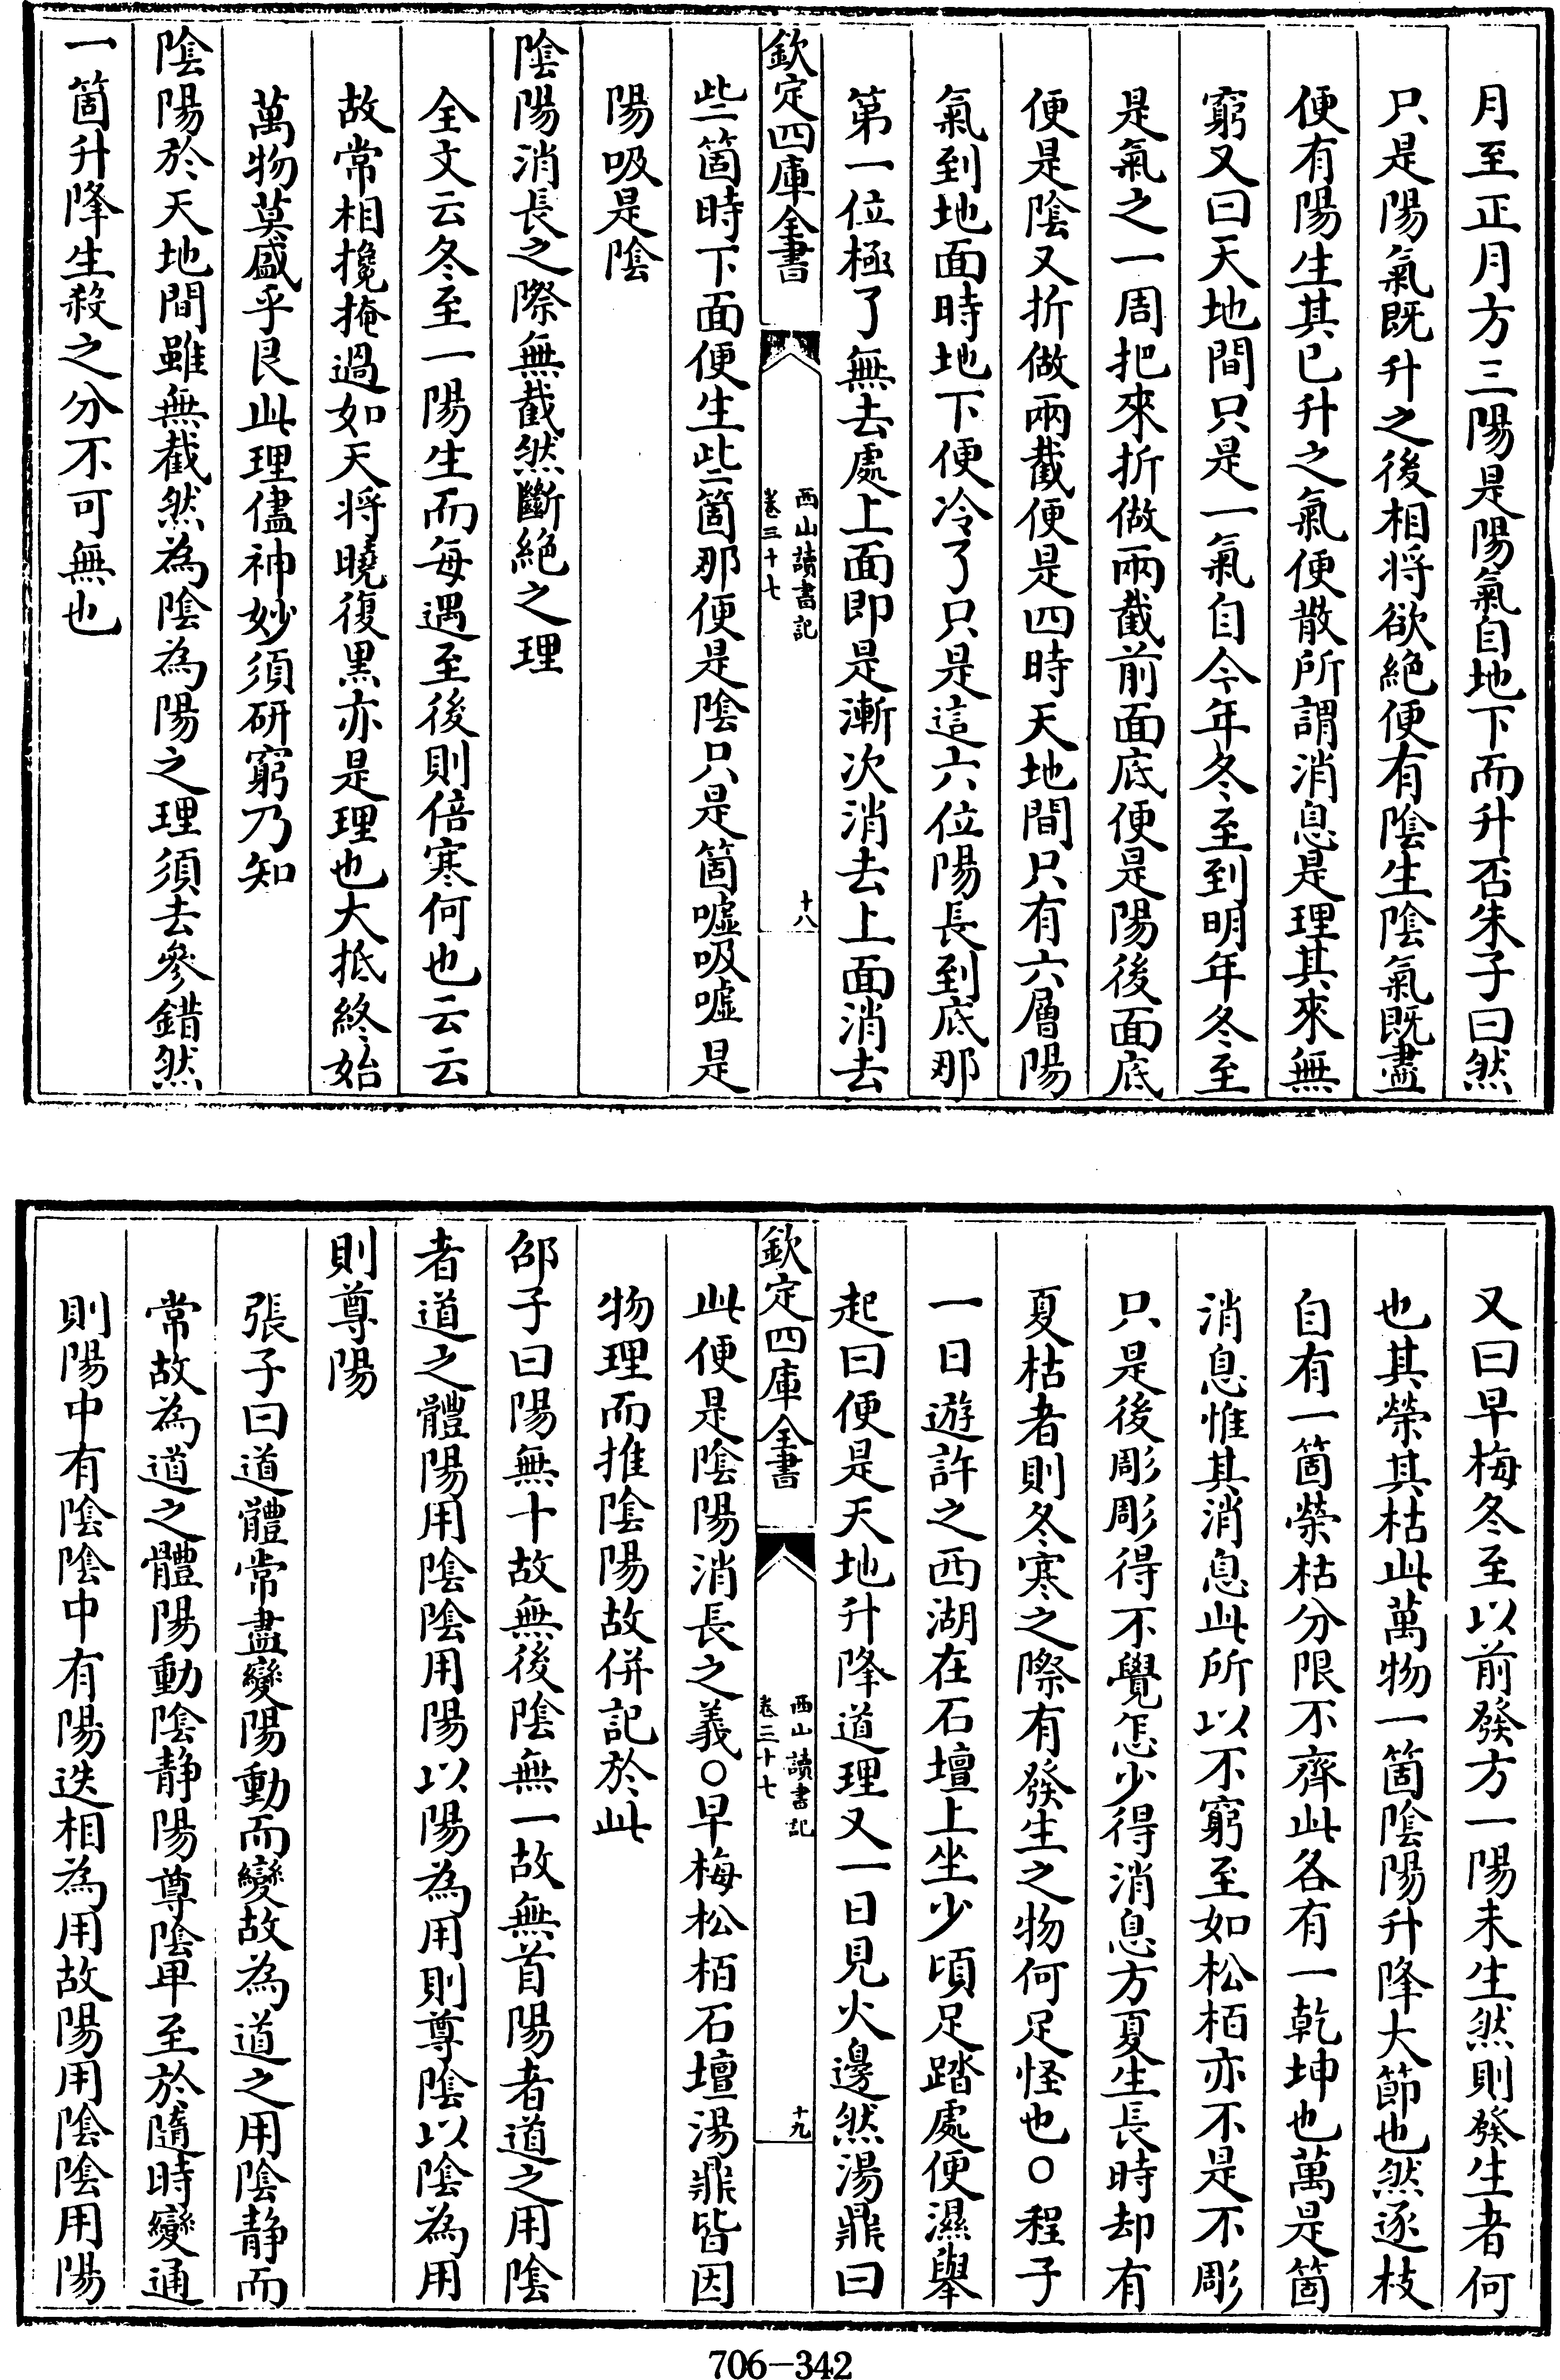 月至正月方三陽是陽氣自地下而升否朱子曰然
只是陽氣既升之後相將欲絶便有陰生陰氣既盡
便有陽生其已升之氣便散所謂消息是理其來無
窮又曰天地間只是一氣自今年冬至到明年冬至
是氣之一周把來折做兩截前面底便是陽後面底
便是陰又折做兩截便是四時天地間只有六層陽
氣到地面時地下便冷了只是這六位陽長到底那
第一位極了無去處上面即是漸次消去上面消去
欽定四庫全書
西山讀書記
卷三十七
十八
些箇時下面便生些箇那便是陰只是箇噓吸噓是
陽吸是陰
陰陽消長之際無截然斷絶之理
全文云冬至一陽生而每遇至後則倍寒何也云云
故常相攙掩過如天將曉復黑亦是理也大抵終始
萬物莫盛乎艮此理儘神妙須研窮乃知
陰陽於天地間雖無截然為陰為陽之理須去參錯然
一箇升降生殺之分不可無也
又曰早梅冬至以前發方一陽未生然則發生者何
也其榮其枯此萬物一箇陰陽升降大節也然逐枝
自有一箇榮枯分限不齊此各有一乾坤也萬是箇
消息惟其消息此所以不窮至如松栢亦不是不彫
只是後彫彫得不覺怎少得消息方夏生長時却有
夏枯者則冬寒之際有發生之物何足怪也○程子
一日遊許之西湖在石壇上坐少頃足踏處便濕舉
起曰便是天地升降道理又一日見火邊然湯鼎曰
欽定四庫全書
西山讀書記
卷三十七
十九
此便是陰陽消長之義○早梅松栢石壇湯鼎皆因
物理而推陰陽故併記於此
邵子曰陽無十故無後陰無一故無首陽者道之用陰
者道之體陽用陰陰用陽以陽為用則尊陰以陰為用
則尊陽
張子曰道體常盡變陽動而變故為道之用陰静而
常故為道之體陽動陰静陽尊陰卑至於隨時變通
則陽中有陰陰中有陽迭相為用故陽用陰陰用陽
706-342